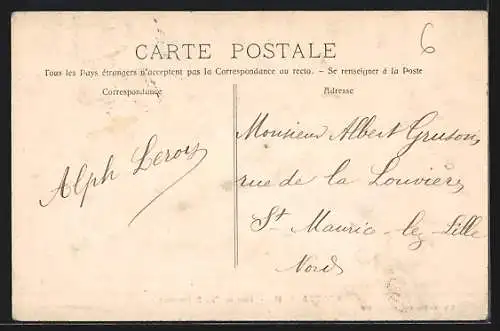 6
CARTE POSTALE
Tous les Pays étrangers n'acceptent pas la Correspondance au recto. - Se renseigner à la Poste
Correspondance
Adresse
Alph Leroy
Monsieur Albert Gruson
rue de la Louvière
St Maurice-lez-Lille
Nord